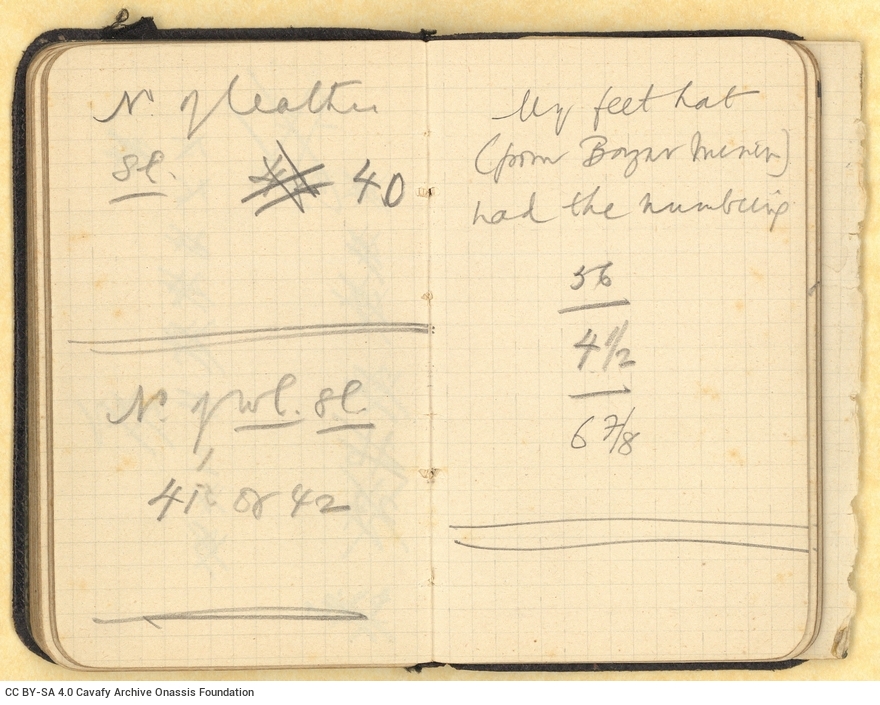 No. of leather
sl. 40
No. of wl. sl.
41 or 42
My felt hat
(from Bazar Menin)
had the numbering
56
4 1/2
6 7/8
CC BY-SA 4.0 Cavafy Archive Onassis Foundation